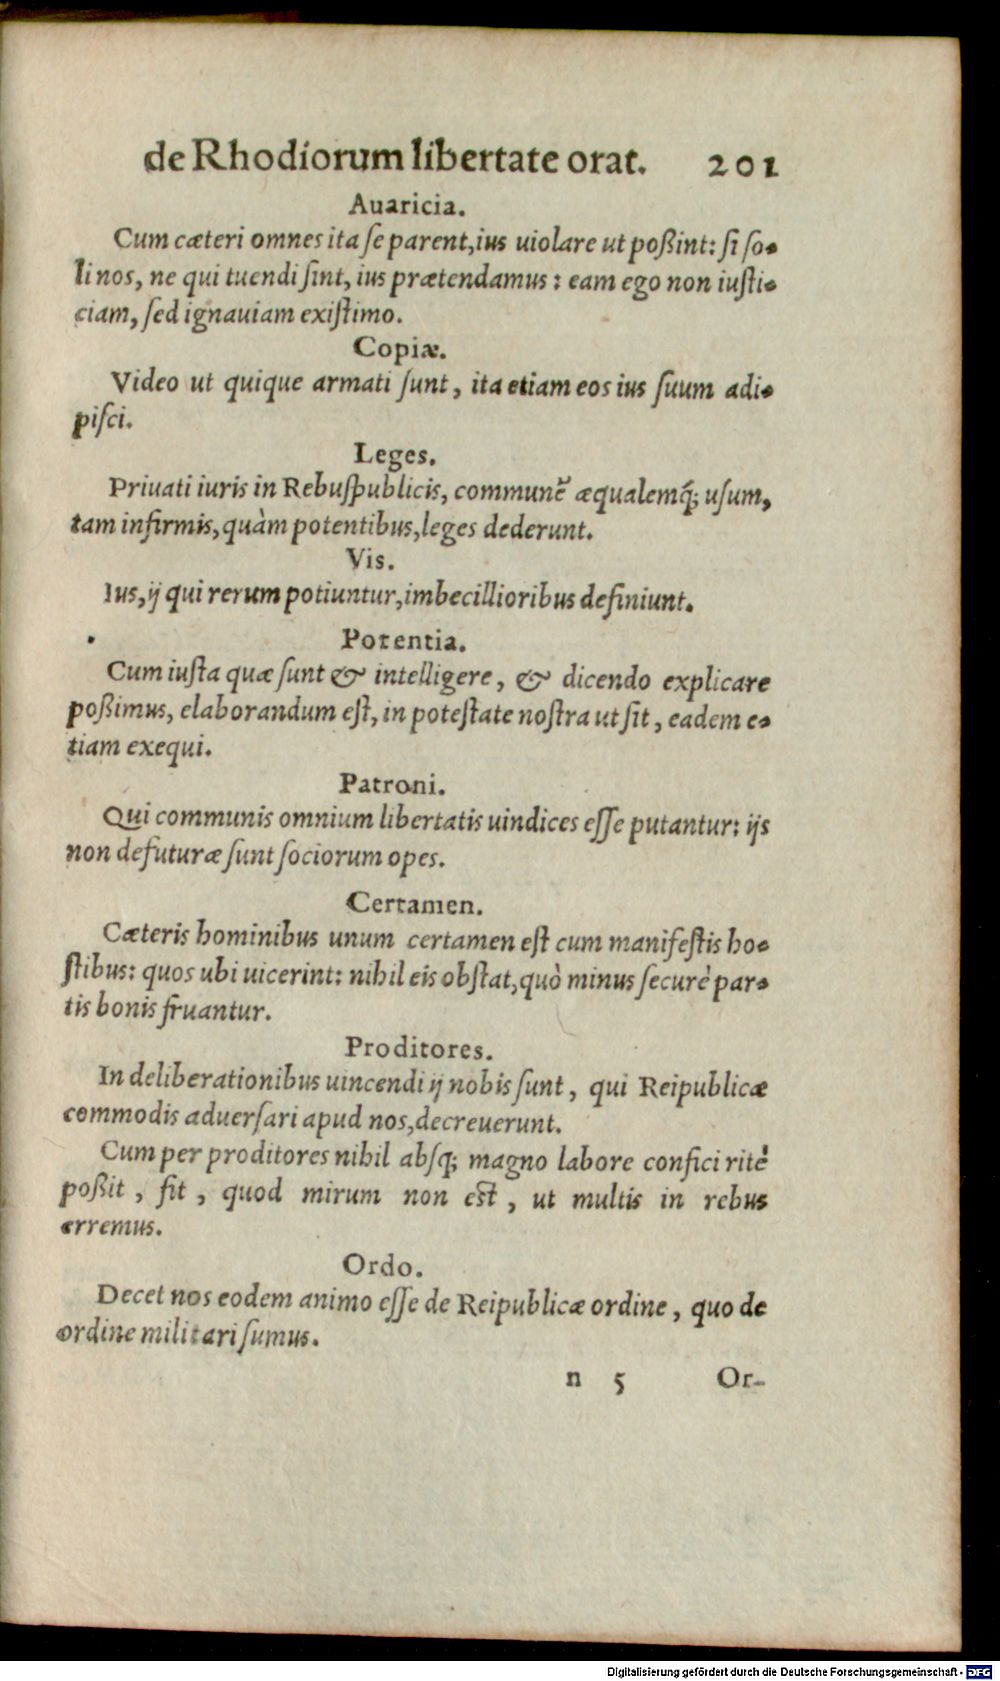 de Rhodiorum libertate orat. 201
Auaricia.
Cum cæteri omnes ita ſe parent, ius uiolare ut poßint: ſi ſo-
li nos, ne qui tuendi ſint, ius prætendamus: eam ego non iuſti-
ciam, ſed ignauiam exiſtimo.
Copiæ.
Video ut quique armati ſunt, ita etiam eos ius ſuum adi-
piſci.
Leges.
Priuati iuris in Rebuſpublicis, communē æqualemq́; uſum,
tam infirmis, quàm potentibus, leges dederunt.
Vis.
Ius, ij qui rerum potiuntur, imbecillioribus definiunt.
Potentia.
Cum iuſta quæ ſunt & intelligere, & dicendo explicare
poßimus, elaborandum eſt, in poteſtate noſtra ut ſit, eadem e-
tiam exequi.
Patroni.
Qui communis omnium libertatis uindices eſſe putantur: ijs
non defuturæ ſunt ſociorum opes.
Certamen.
Cæteris hominibus unum certamen eſt cum manifeſtis ho-
ſtibus: quos ubi uicerint: nihil eis obſtat, quò minus ſecurè par-
tis bonis fruantur.
Proditores.
In deliberationibus uincendi ij nobis ſunt, qui Reipublicæ
commodis aduerſari apud nos, decreuerunt.
Cum per proditores nihil abſq; magno labore confici ritè
poßit, fit, quod mirum non eſt, ut multis in rebus
erremus.
Ordo.
Decet nos eodem animo eſſe de Reipublicæ ordine, quo de
ordine militari ſumus.
n 5 Or-
Digitalisierung gefördert durch die Deutsche Forschungsgemeinschaft - DFG